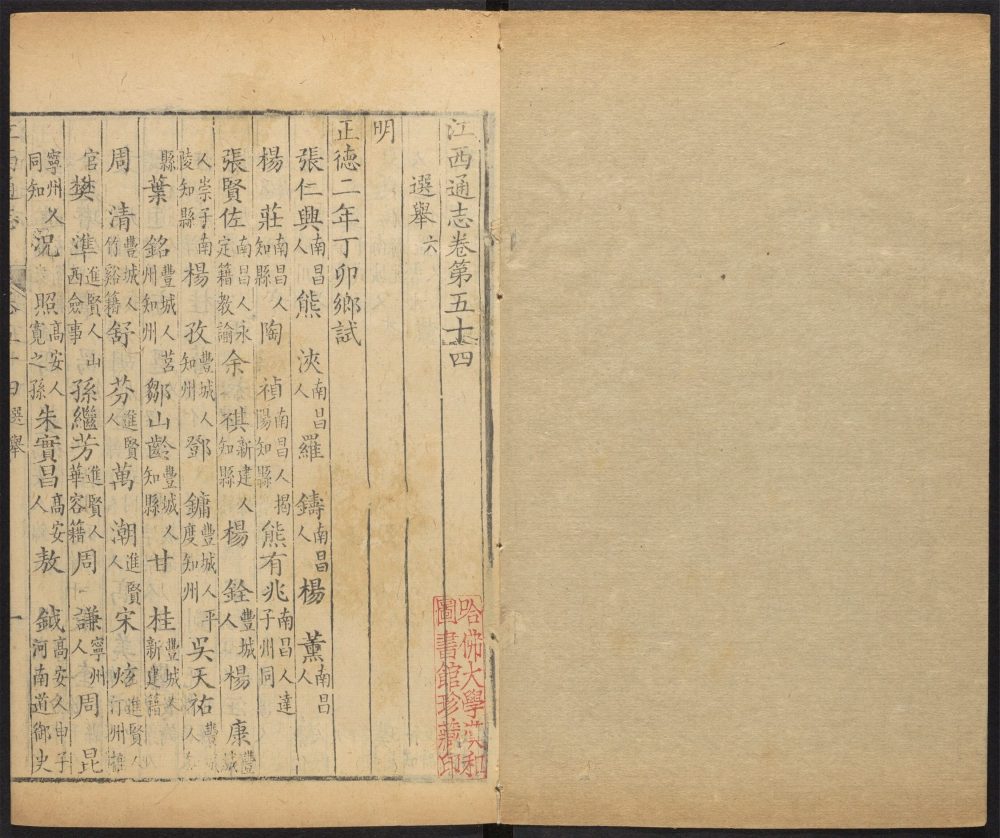 江西通志卷第五十四
選舉 六
明
正德二年丁卯鄉試
張仁興 南昌人 熊浹 南昌人 羅鑄 南昌人 楊薰 南昌人
楊莊 南昌人知縣 陶禎 南昌人揭陽知縣 熊有兆 南昌人達子州同
張賢佐 南昌人永定籍教諭 余祺 新建人知縣 楊銓 豐城人 楊康 豐城
人崇子南陵知縣 楊孜 豐城人知州 鄧鏞 豐城人平度知州 吳天祐 豐城人
縣 葉銘 豐城人莒州知州 鄒山齡 豐城人知縣 甘桂 豐城人新建籍
周清 豐城人竹谿籍 舒芬 進賢人 萬潮 進賢人 宋炫 進賢人汀州
官 樊準 進賢人山西僉事 孫繼芳 進賢人華容籍 周謙 寧州人 周昆
寧州人同知 況照 高安人寬之孫 朱實昌 高安人 敖鉞 高安人申子河南道御史
江西通志 卷五十四 選舉 一
哈佛大學漢和
圖書館珍藏印